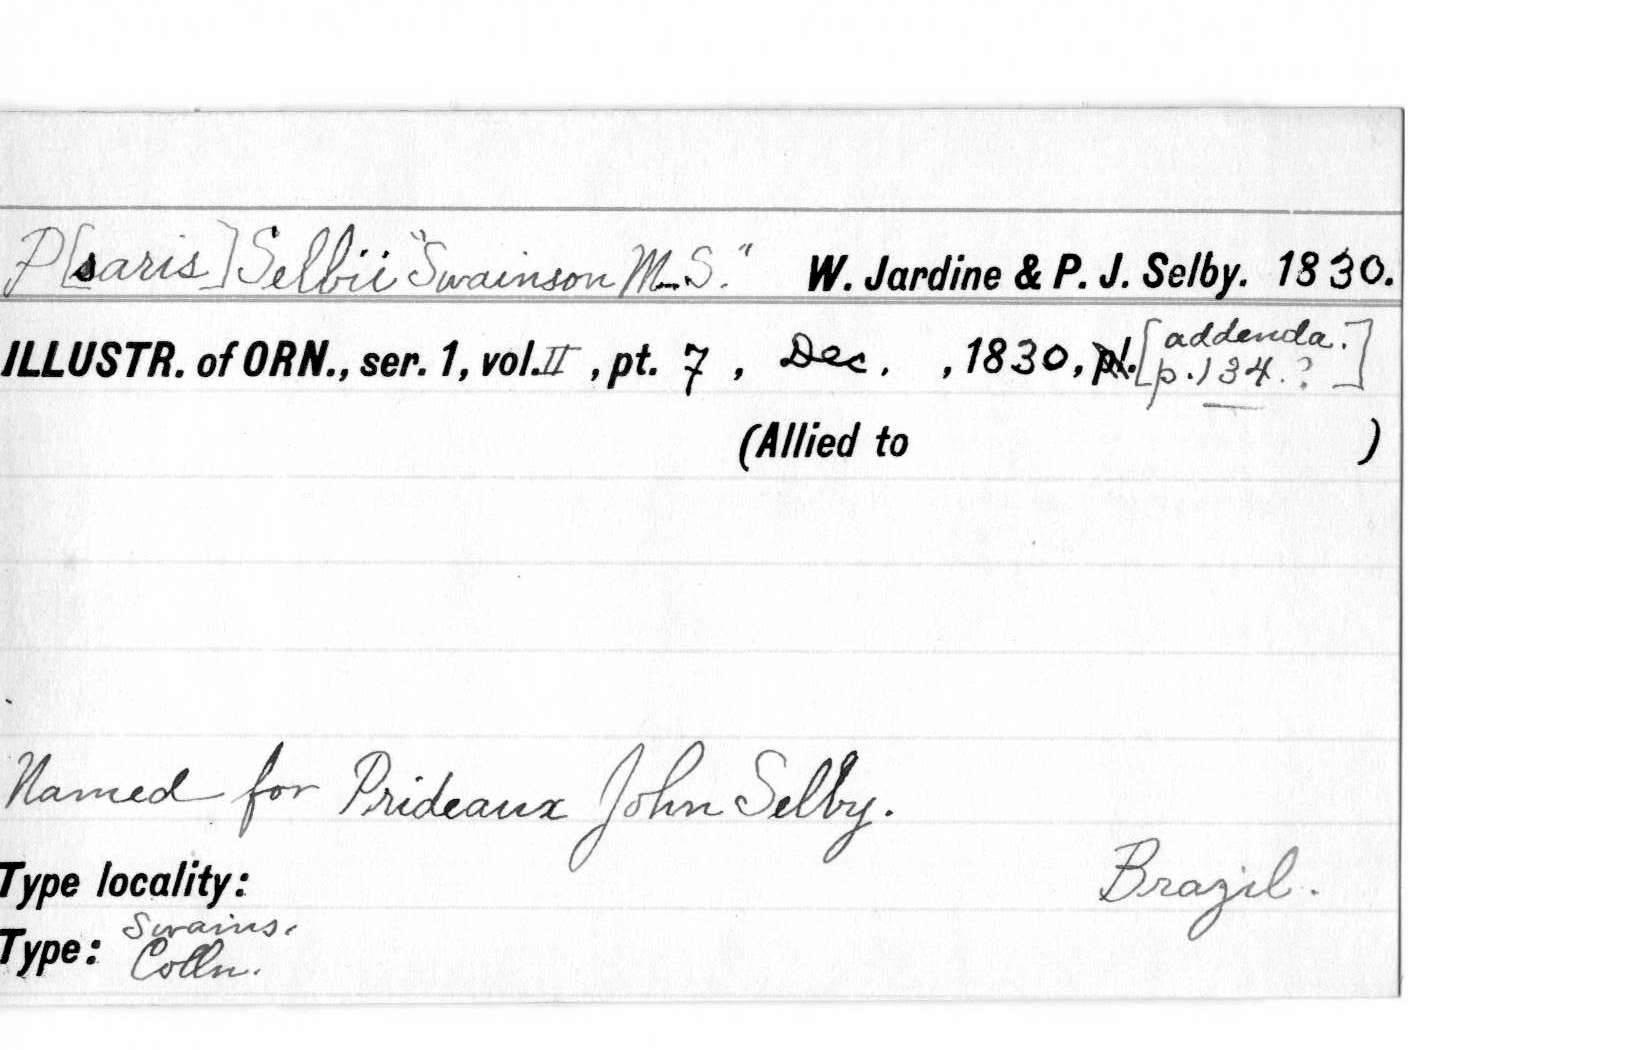 P[saris] Selbii "Swainson M.S." W. Jardine & P. J. Selby. 1830.
ILLUSTR. of ORN., ser. 1, vol. II, pt. 7, Dec., 1830, pl. [addenda.
p. 134.?]
(Allied to )
Named for Prideaux John Selby.
Brazil.
Type locality:
Swains.
Type: Colln.